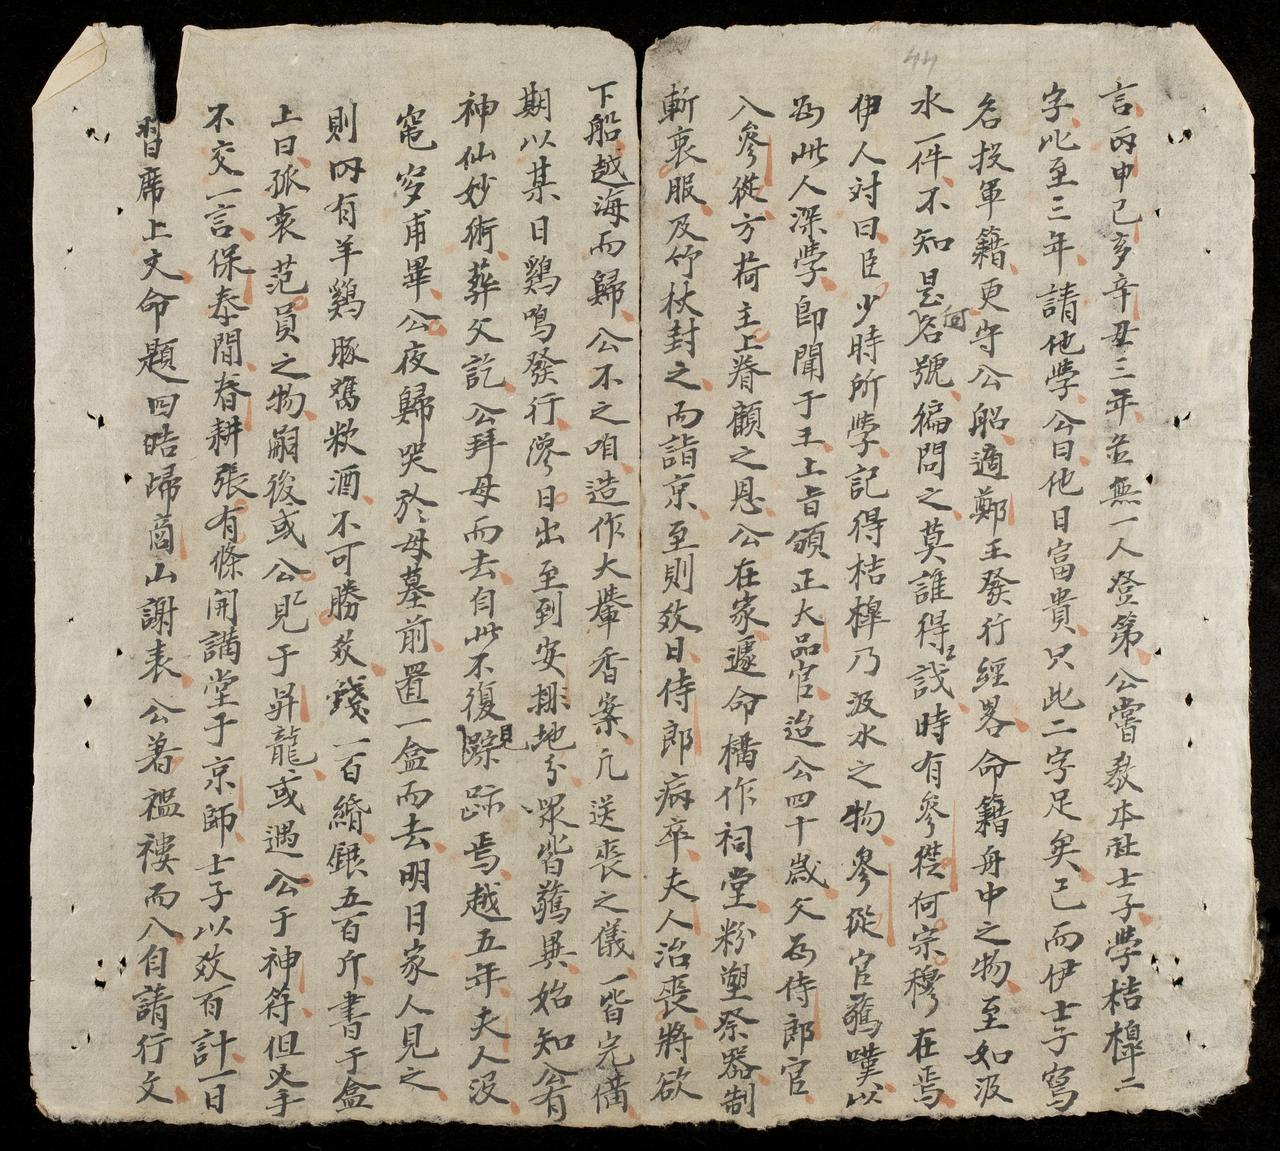 44
言丙申己亥辛丑三年並無一人登第公嘗教本社士子學桔槹二
字比至三年請他學公曰他日富貴只此二字足矣已而伊士子寫
名投軍籍更守公船適鄭王發行經畧命籍舟中之物至如汲
水一件不知是何名號徧問之莫誰得識時有參從何宗穆在焉
伊人対曰臣少時所學記得桔槹乃汲水之物參從官驚嘆以
為此人深學即聞于王上旨頒正大品官迨公四十歲父為侍郎官
入參從方荷主上眷顧之恩公在家遽命橘作祠堂粉塑祭器制
斬衰服及竹杖封之而詣京至則效日侍郎病卒夫人治喪將欲
下船越海而歸公不之咱造作大轝香案凡送喪之儀一皆完備
期以某日鷄鳴發行漻日出至到安排地分眾皆驚異始知公有
神仙妙術葬父訖公拜母而去自此不復見踪跡焉越五年夫人沒
窀穸甫畢公夜歸哭於母墓前置一盒而去明日家人見之
則內有羊鷄豚舊粎酒不可勝炗錢一百緡銀五百斤書于盒
上曰孤哀范員之物嗣後或公見于昇龍或遇公于神符但㕛手
不交一言保泰間眷耕張有條開講堂于京師士子以效百計一日
習席上文命題四皓歸商山謝表公著襤褸而入自請行文